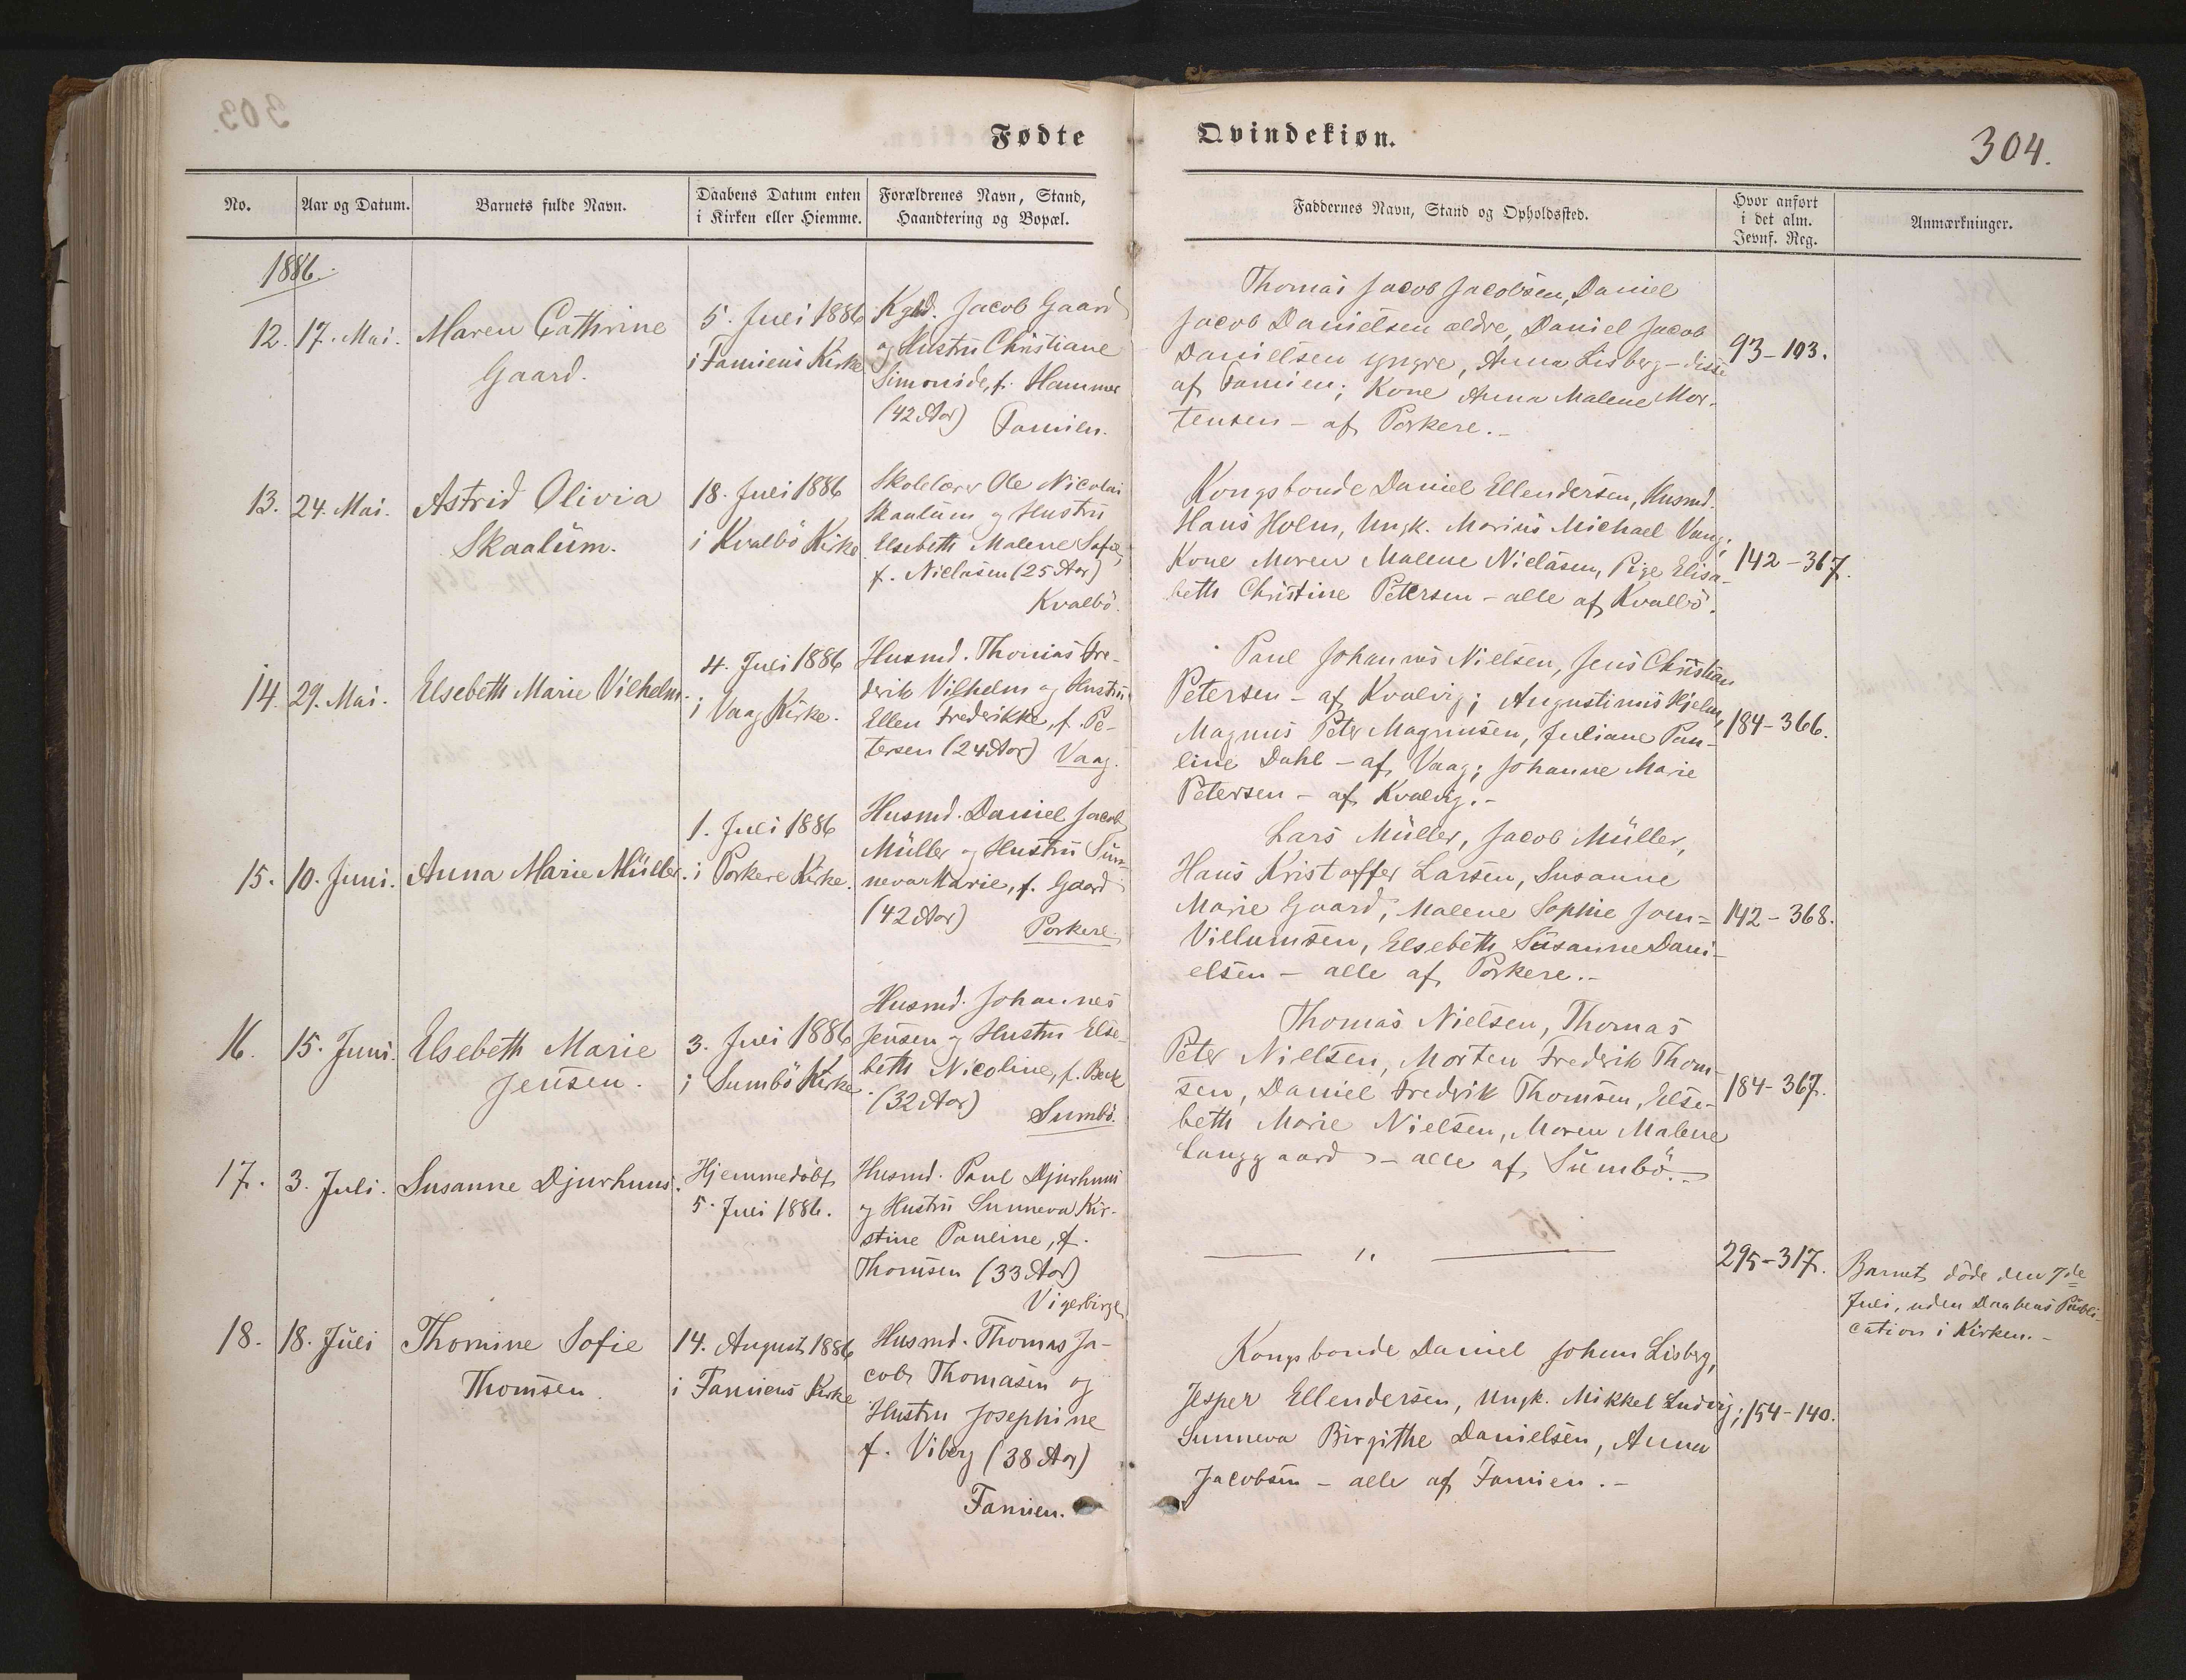 Fødte
Qvindekiøn.
304.
No.
Aar og Datum.
Barnets fulde Navn.
Daabens Datum enten
i Kirken eller Hiemme.
Forældrenes Navn, Stand,
Haandtering og Bopæl.
Faddernes Navn, Stand og Opholdssted.
Hvor anført
i det alm.
Jevnf. Reg.
Anmærkninger.
1886.
12.
17. Mai.
Maren Cathrine
Gaard.
5. Juli 1886
i Famiens Kirke
Kgbd. Jacob Gaard
og Hustru Christiane
Simonide, f. Hammer
(42 Aar) Famien.
Thomas Jacob Jacobsen, Daniel
Jacob Danielsen ældre, Daniel Jacob
Danielsen yngre, Anna Lisberg - disse
af Famien; Kone Anna Malene Mor-
tensen - af Porkere.-
93-103.
13.
24. Mai.
Astrid Olivia
Skaalum.
18. Juli 1886
i Kvalbö Kirke.
Skolelærer Ole Nicolai
Skaalum og Hustru
Elsebeth Malene Sofie,
f. Niclasen (25 Aar)
Kvalbö.
Kongsbonde Daniel Ellendersen, Husmd.
Hans Holm, Ungk. Marius Michael Vang;
Kone Maren Malene Niclasen, Pige Elisa-
beth Christine Petersen - alle af Kvalbö.
142-367.
14.
29. Mai.
Elsebeth Marie Vilhelm.
4. Juli 1886
i Vaag Kirke.
Husmd. Thomas Fre-
derik Vilhelm og Hustru
Ellen Frederikke, f. Pe-
tersen (24 Aar) Vaag.
Paul Johannes Nielsen, Jens Christian
Petersen - af Kvalvig; Augustinus Hjelm,
Magnus Peter Magnusen, Juliane Pau-
line Dahl - af Vaag; Johanne Marie
Petersen - af Kvalvig.-
184-366.
15.
10. Juni.
Anna Marie Müller.
1. Juli 1886
i Porkere Kirke.
Husmd. Daniel Jacob
Müller og Hustru Sun-
neva Marie, f. Gaard
(42 Aar) Porkere.
Lars Müller, Jacob Müller,
Hans Kristoffer Larsen, Susanne
Marie Gaard, Malene Sophie Joen=
Villumsen, Elsebeth Susanne Dani-
elsen - alle af Porkere.-
142-368.
16.
15. Juni.
Elsebeth Marie
Jensen.
3. Juli 1886
i Sumbö Kirke.
Husmd. Johannes
Jensen og Hustru Else-
beth Nicoline, f. Beck
(32 Aar) Sumbö.
Thomas Nielsen, Thomas
Peter Nielsen, Morten Fredrik Thom-
sen, Daniel Fredrik Thomsen, Else-
beth Marie Nielsen, Maren Malene
Langgaard - alle af Sumbö.-
184-367.
17.
3. Juli.
Susanne Djurhuus.
Hjemmedöbt
5. Juli 1886.
Husmd. Paul Djurhuus
og Hustru Sunneva Kir-
stine Pauline, f.
Thomsen (33 Aar)
Vigerbirge
15
— " —
295-317.
Barnet döde den 7de
Juli, uden Daabens Publi-
cation i Kirken.-
18.
18. Juli
Thomine Sofie
Thomsen.
14. August 1886
i Famiens Kirke
Husmd. Thomas Ja-
cob Thomasen og
Hustru Josephine
f. Viberg (38 Aar)
Famien.
Kongsbonde Daniel Johan Lisberg,
Jesper Ellendersen, Ungk. Mikkel Ludvig;
Sunneva Birgithe Danielsen, Anna
Jacobsen - alle af Famien.-
154-140.